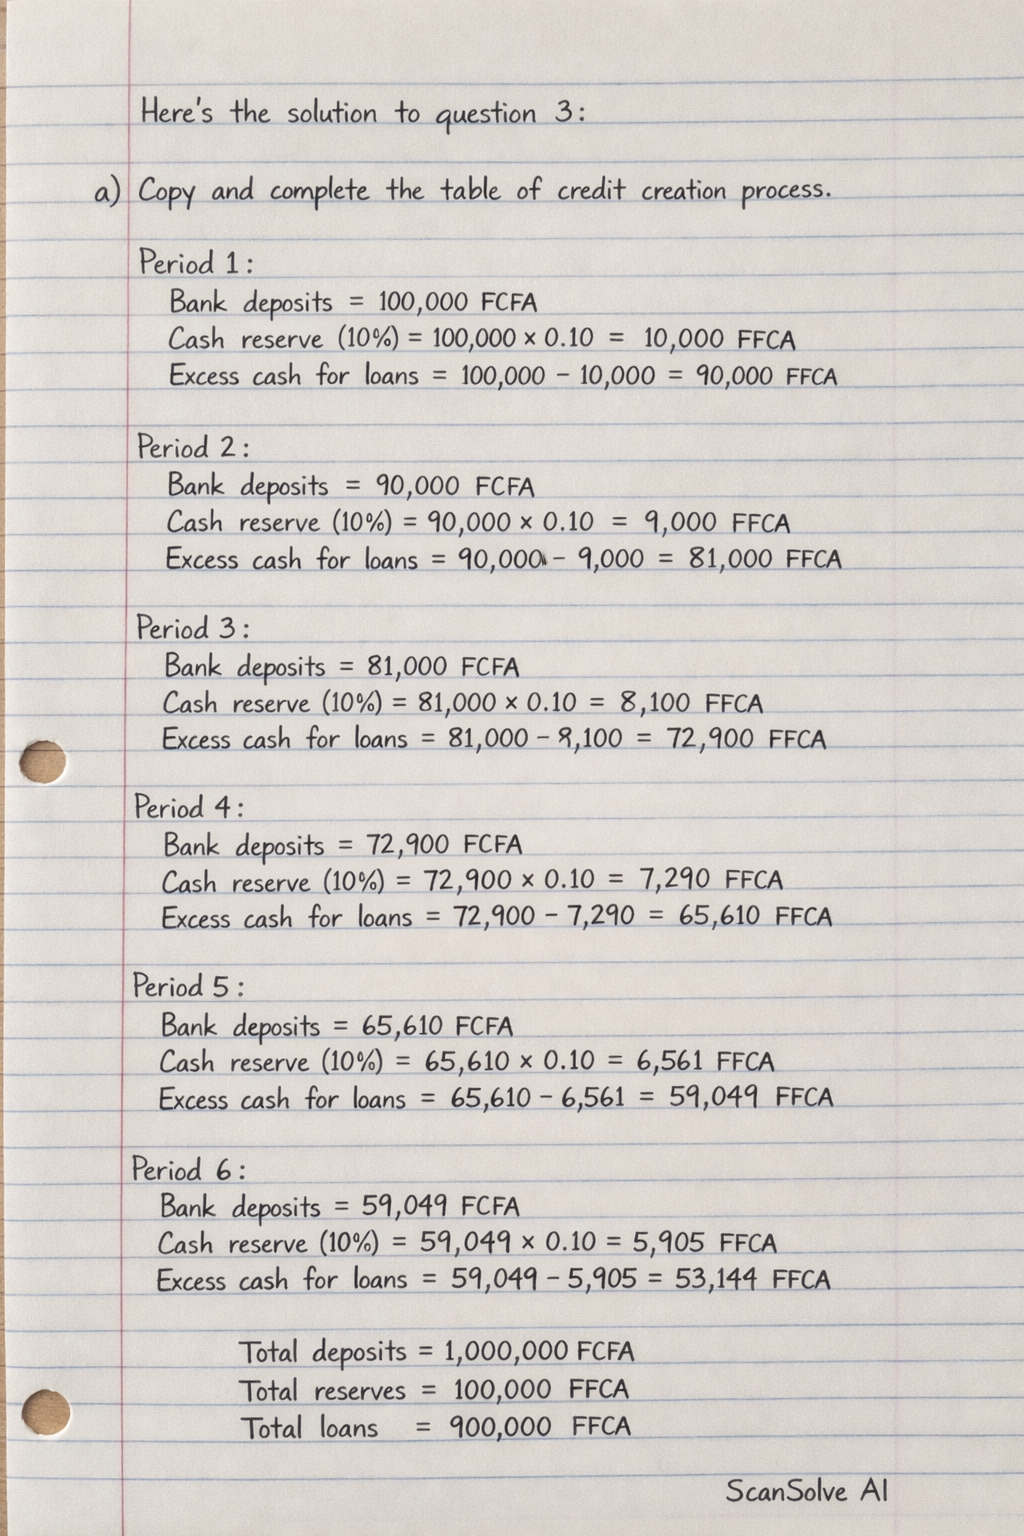 Here's the solution to question 3:
a) Copy and complete the table of credit creation process.
Period 1:
Bank deposits = 100,000 FCFA
Cash reserve (10%) = 100,000 × 0.10 = 10,000 FFCA
Excess cash for loans = 100,000 - 10,000 = 90,000 FFCA
Period 2:
Bank deposits = 90,000 FCFA
Cash reserve (10%) = 90,000 × 0.10 = 9,000 FFCA
Excess cash for loans = 90,000 - 9,000 = 81,000 FFCA
Period 3:
Bank deposits = 81,000 FCFA
Cash reserve (10%) = 81,000 × 0.10 = 8,100 FFCA
Excess cash for loans = 81,000 - 8,100 = 72,900 FFCA
Period 4:
Bank deposits = 72,900 FCFA
Cash reserve (10%) = 72,900 × 0.10 = 7,290 FFCA
Excess cash for loans = 72,900 - 7,290 = 65,610 FFCA
Period 5:
Bank deposits = 65,610 FCFA
Cash reserve (10%) = 65,610 × 0.10 = 6,561 FFCA
Excess cash for loans = 65,610 - 6,561 = 59,049 FFCA
Period 6:
Bank deposits = 59,049 FCFA
Cash reserve (10%) = 59,049 × 0.10 = 5,905 FFCA
Excess cash for loans = 59,049 - 5,905 = 53,144 FFCA
Total deposits = 1,000,000 FCFA
Total reserves = 100,000 FFCA
Total loans = 900,000 FFCA
ScanSolve AI